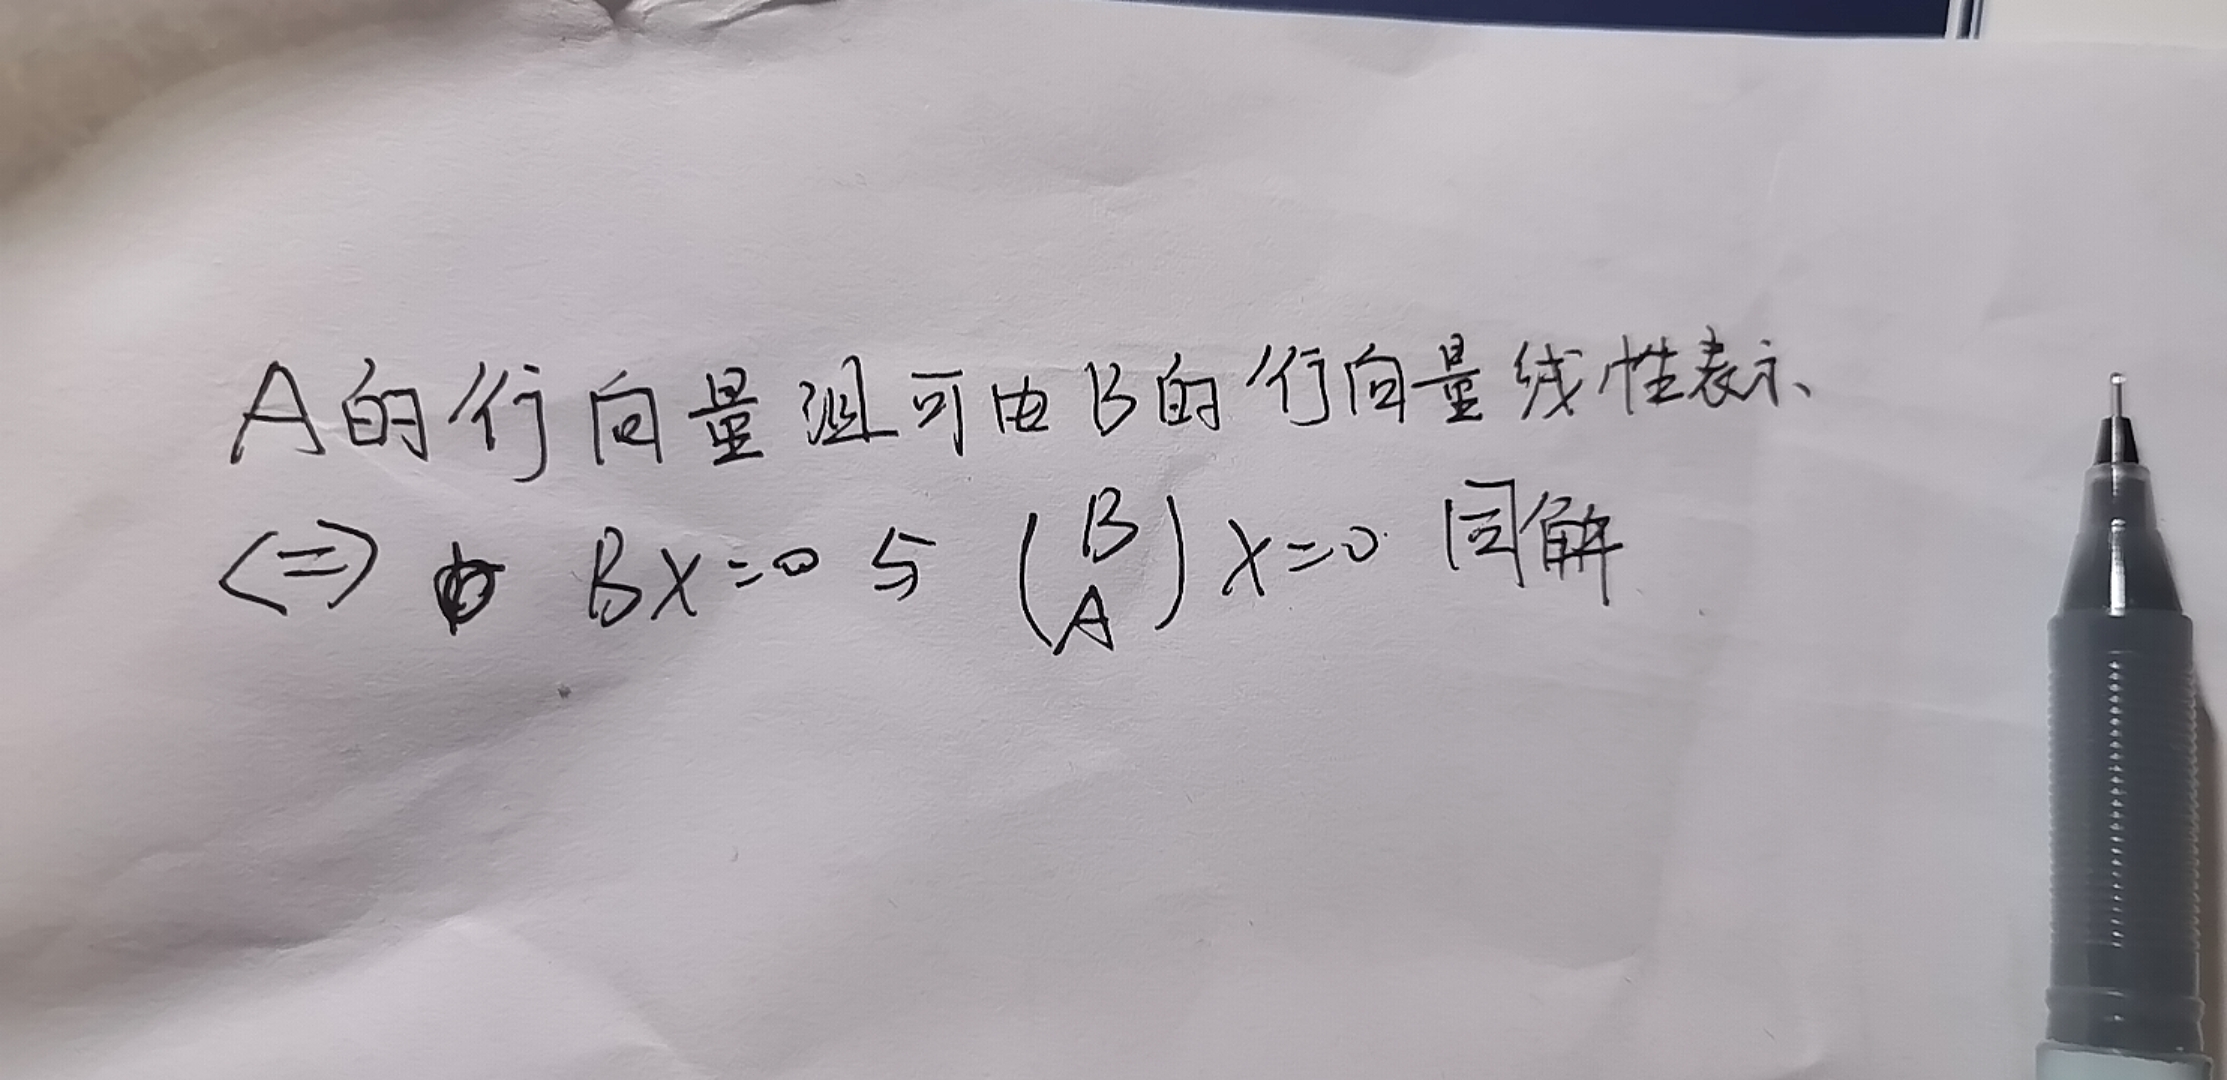 A的行向量组可由B的行向量线性表示
<=> Bx=0与(B A)x=0 同解